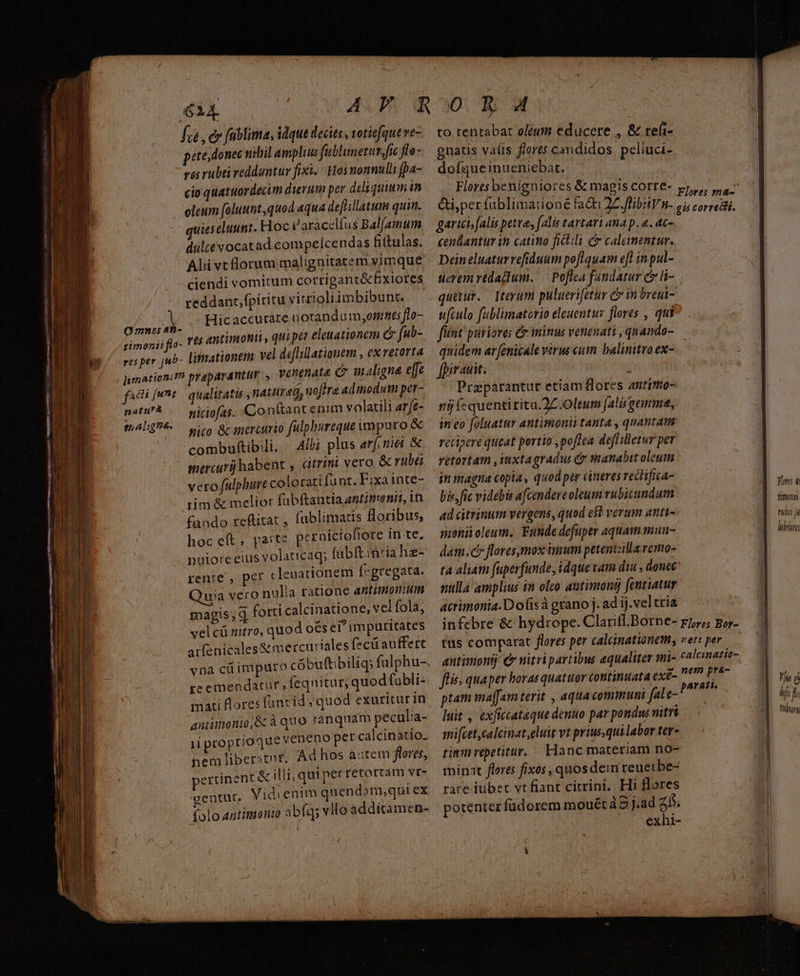 624 AVRORA
sce, & sublima, idque decies, totiesque re-
pete, donec nihil amplius sublimetur, sic flo-
res rubei redduntur fixi. Hos nonnulli spa-
cio quatuordecim dierum per deliquium in
oleum soluunt, quod aqua destillatum quin-
quies eluunt. Hoc Paracelsus Balsamum
dulce vocat ad compescendas fistulas.
Alii vt florum malignitatem vimque
ciendi vomitum corrigant & fixiores
reddant, spiritu vitrioli imbibunt.
Hic accurate notandum, omnes flo-
res antimonii, qui per eleuationem & sub-
limationem vel destillationem, ex retorta
præparantur, venenatæ & malignæ esse
qualitatis, naturæq; nostræ admodum per-
niciosas. Constant enim volatili arse-
nico & mercurio sulphureque impuro &
combustibili. Albi plus arsenici &
mercurij habent, citrini vero & rubei
vero sulphure colorati sunt. Fixa inte-
rim & melior substantia antimonii, in
fundo restitat, sublimatis floribus,
hoc est, parte perniciosiore in te-
nuiore eius volaticaq; substantia hæ-
rente, per eleuationem segregata.
Quia vero nulla ratione antimonium
magis, q̃ forti calcinatione, vel sola,
vel cū nitro, quod oēs ei⁹ impuritates
arsenicales & mercuriales secū auffert
vna cū impuro cōbustibiliq; sulphu-
re emendatur, sequitur, quod subli-
mati flores sunt id, quod exuritur in
antimonio, & à quo tanquam peculia-
ri proprioque veneno per calcinatio-
nem liberatur. Ad hos autem flores,
pertinent & illi, qui per retortam vr-
gentur. Vidi enim quendam, qui ex
solo antimonio absq; vllo additamen-
Omnes an-
timonii flo-
res per sub-
limationem
facti sunt
natura
maligna.
to tentabat oleum educere, & resi-
gnatis vasis flores candidos pelluci-
dosque inueniebat.
Flores benigniores & magis corre-
cti, per sublimationē facti ℞. stibii V n-
garici, salis petræ, salis tartari ana p. æ. ac-
cendantur in catino fictili & calcinentur.
Dein eluatur residuum postquam est in pul-
uerem redactum. Postea fundatur & li-
quetur. Iterum puluerisetur & in breui-
usculo sublimatorio eleuentur flores, qui
sunt puriores & minus venenati, quando-
quidem arsenicale virus cum halinitro ex-
spirauit.
Præparantur etiam flores antimo-
nij sequenti ritu. ℞. Oleum salis gemmæ,
in eo soluatur antimonii tanta, quantam
recipere queat portio, postea destilletur per
retortam, iuxta gradus & manabit oleum
in magna copia, quod per cineres rectifica-
bis, sic videbis ascendere oleum rubicundum
ad citrinum vergens, quod est verum anti-
monii oleum. Funde desuper aquam mun-
dam, & flores, mox imum petent: illa remo-
ta aliam superfunde, idque tam diu, donec
nulla amplius in oleo antimonij sentiatur
acrimonia. Dosis à grano j. ad ij. vel tria
in febre & hydrope. Clariss. Borne-
tus comparat flores per calcinationem,
antimonij & nitri partibus æqualiter mi-
stis, qua per horas quatuor continuata exē-
ptam massam terit, aqua communi sæpe-
luit, exsiccatæque denuo par pondus nitri
miscet, calcinat, eluit vt prius, qui labor ter-
tium repetitur. Hanc materiam no-
minat flores fixos, quos dein reuerbe-
rare iubet vt fiant citrini. Hi flores
potenter sudorem mouēt à ℈ j. ad ʒß.
exhi-
Flores ma-
gis correcti.
Flores Bor-
neti per
calcinatio-
nem præ-
parati.